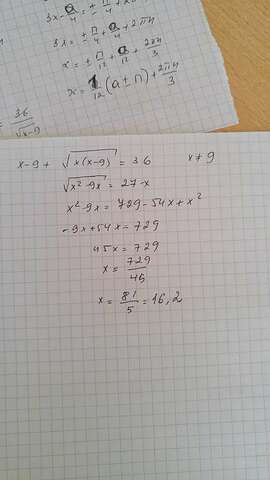 3x - a/4 = ± п/4 + 2пн
3x = ± п/4 + a/4 + 2пн
x = ± п/12 + a/12 + 2пн/3
x = 1/12 (a ± п) + 2пн/3
= 36/√x-9
x - 9 + √x(x-9) = 36 x ≠ 9
√x² - 9x = 27 - x
x² - 9x = 729 - 54x + x²
-9x + 54x = 729
45x = 729
x = 729/45
x = 81/5 = 16,2